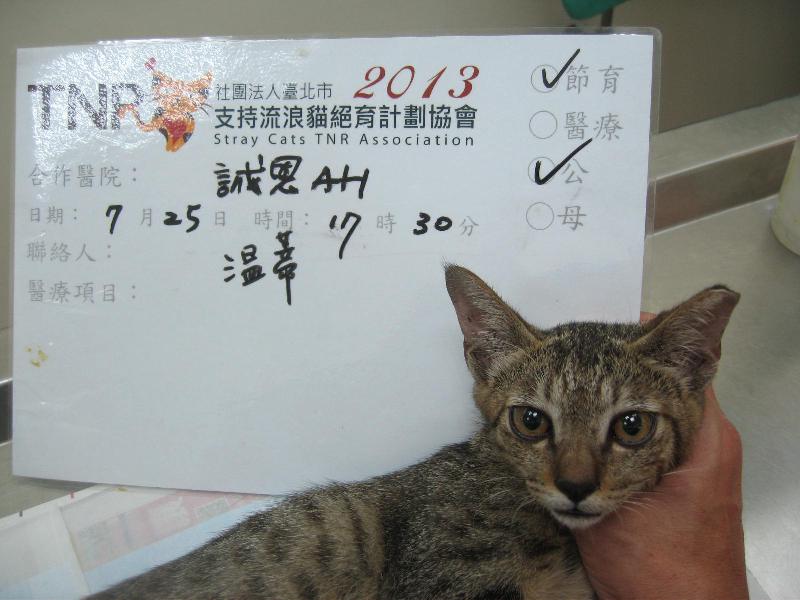 TNR
社團法人臺北市 2013
支持流浪貓絕育計劃協會
Stray Cats TNR Association
✓節育
醫療
✓公
母
合作醫院： 誠恩AH
日期： 7 月 25 日 時間： 17 時 30 分
聯絡人： 溫蒂
醫療項目：